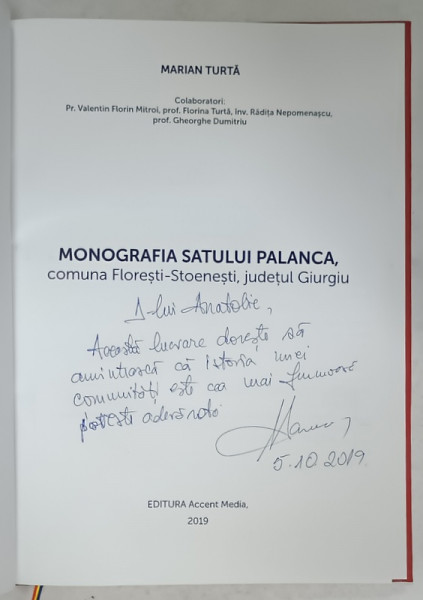 MARIAN TURTĂ
Colaboratori:
Pr. Valentin Florin Mitroi, prof. Florina Turtă, înv. Rădița Nepomenașcu,
prof. Gheorghe Dumitriu
MONOGRAFIA SATULUI PALANCA,
comuna Florești-Stoenești, județul Giurgiu
D-lui Anatolie,
Această lucrare dorește să
amintească că istoria unei
comunități este cea mai frumoasă
poveste adevărată
5.10.2019
EDITURA Accent Media,
2019